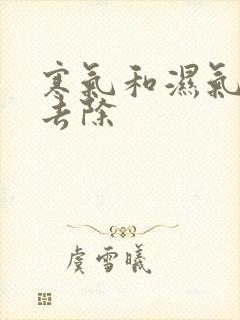 寒氣和濕氣
去除
虞雪曦